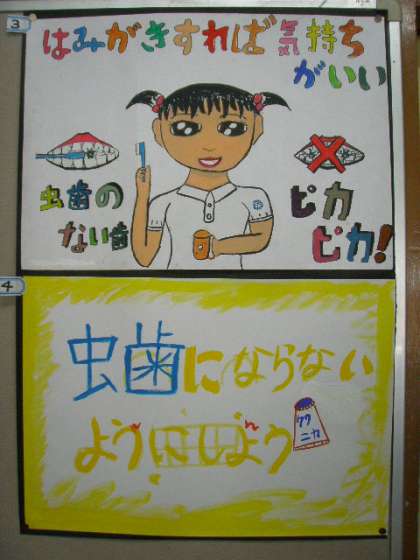 3
はみがきすれば気持ち
がいい
虫歯の
ない歯
ピカ
ピカ!
4
虫歯にならない
ようにしよう